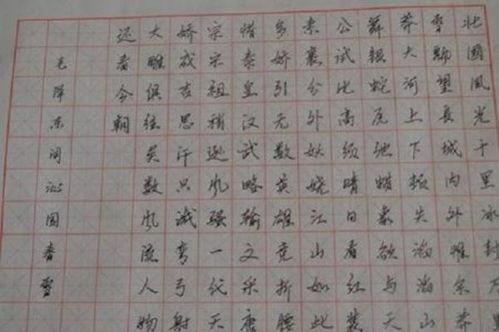 北國風光千里冰封万
雪飘望長城内外惟余莽
莽大河上下顿失滔滔山
舞银蛇原驰蜡象欲与天
公试比高须晴日看红装
素裹分外妖娆江山如此
多娇引无数英雄竞折腰
惜秦皇汉武略输文采唐
宗宋祖稍逊风骚一代天
娇成吉思汗只识弯弓射
大雕俱往矣数风流人物
还看今朝
毛泽东词沁园春雪